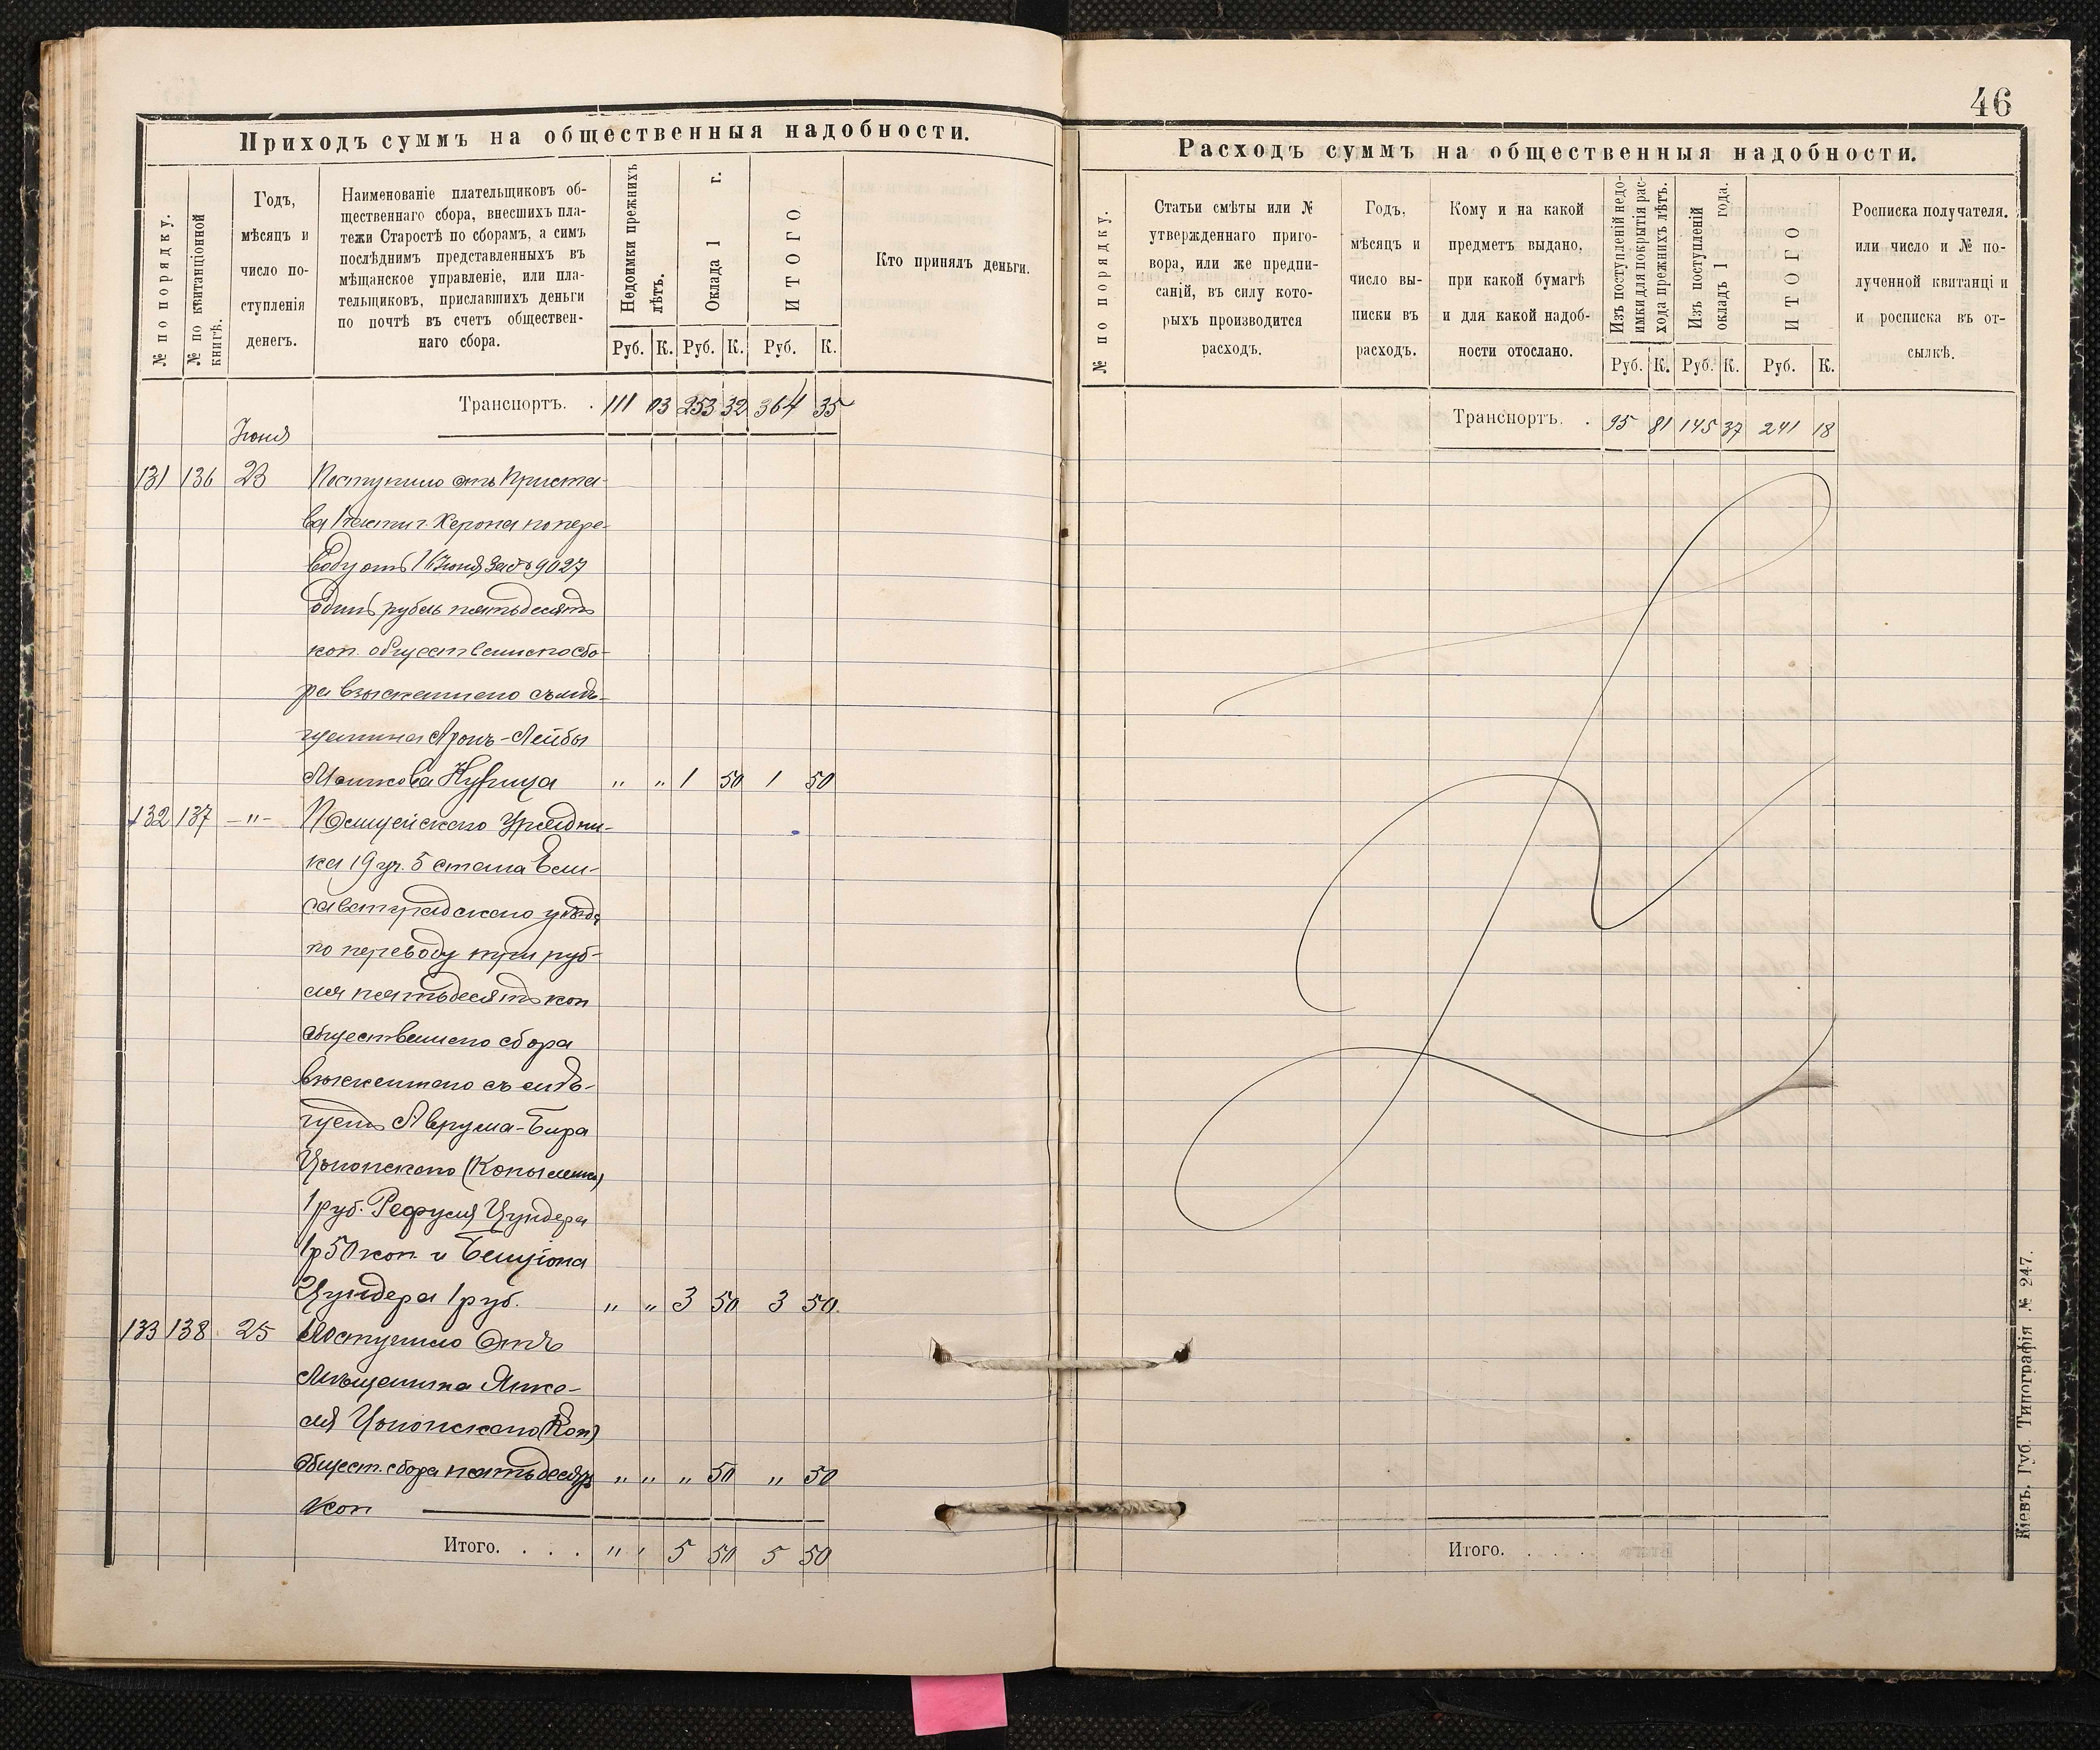 46
Приходъ суммъ на общественныя надобности.
№ по порядку.
№ по квитанціонной
книгѣ.
Годъ,
мѣсяцъ и
число по-
ступленія
денегъ.
Наименованіе плательщиковъ об-
щественнаго сбора, внесшихъ пла-
тежи Старостѣ по сборамъ, а симъ
послѣднимъ представленныхъ въ
мѣщанское управленіе, или пла-
тельщиковъ, приславшихъ деньги
по почтѣ въ счетъ обществен-
наго сбора.
Недоимки прежнихъ
лѣтъ.
Оклада 1 г.
ИТОГО
Кто принялъ деньги.
Руб. К. Руб. К. Руб. К.
Транспортъ. . 111 03 253 32 364 35
Іюня
131 136 23 Поступило отъ Приста-
ва 1 части г. Херсона по пере-
воду отъ 16 Іюня за № 9027
одинъ рубль пятьдесятъ
коп. общественного сбо-
ра взысканного съ мѣ-
щанина Аронъ-Лейбы
" " 1 50 1 50
132 137 -"- Полицейского Урядни-
ка 19 уч. 5 стана Ели-
саветградского уѣзда
по переводу три руб-
ля пятьдесятъ коп
общественного сбора
взысканного съ мѣ-
щанъ Аврума-Бера
1 руб. Рефуля Цундера
1 р 50 коп. и Бенціона
Цундера 1 руб. " " 3 50 3 50.
133 138 25 Поступило отъ
мѣщанина Янке-
ля (Коп)
общест. сбора пятьдесятъ " " " 50 " 50
коп
Итого. . . . " " 5 50 5 50
Расходъ суммъ на общественныя надобности.
№ по порядку.
Статьи смѣты или №
утвержденнаго приго-
вора, или же предпи-
саній, въ силу кото-
рыхъ производится
расходъ.
Годъ,
мѣсяцъ и
число вы-
писки въ
расходъ.
Кому и на какой
предметъ выдано,
при какой бумагѣ
и для какой надоб-
ности отослано.
Изъ поступленій недо-
имки для покрытія рас-
хода прежнихъ лѣтъ.
Изъ поступленій
окладъ 1 года.
ИТОГО
Росписка получателя.
или число и № по-
лученной квитанціи
и росписка въ от-
сылкѣ.
Руб. К. Руб. К. Руб. К.
Транспортъ. . 95 81 145 37 241 18
Итого. . . . .
Кіевъ. Губ. Типографія № 247.